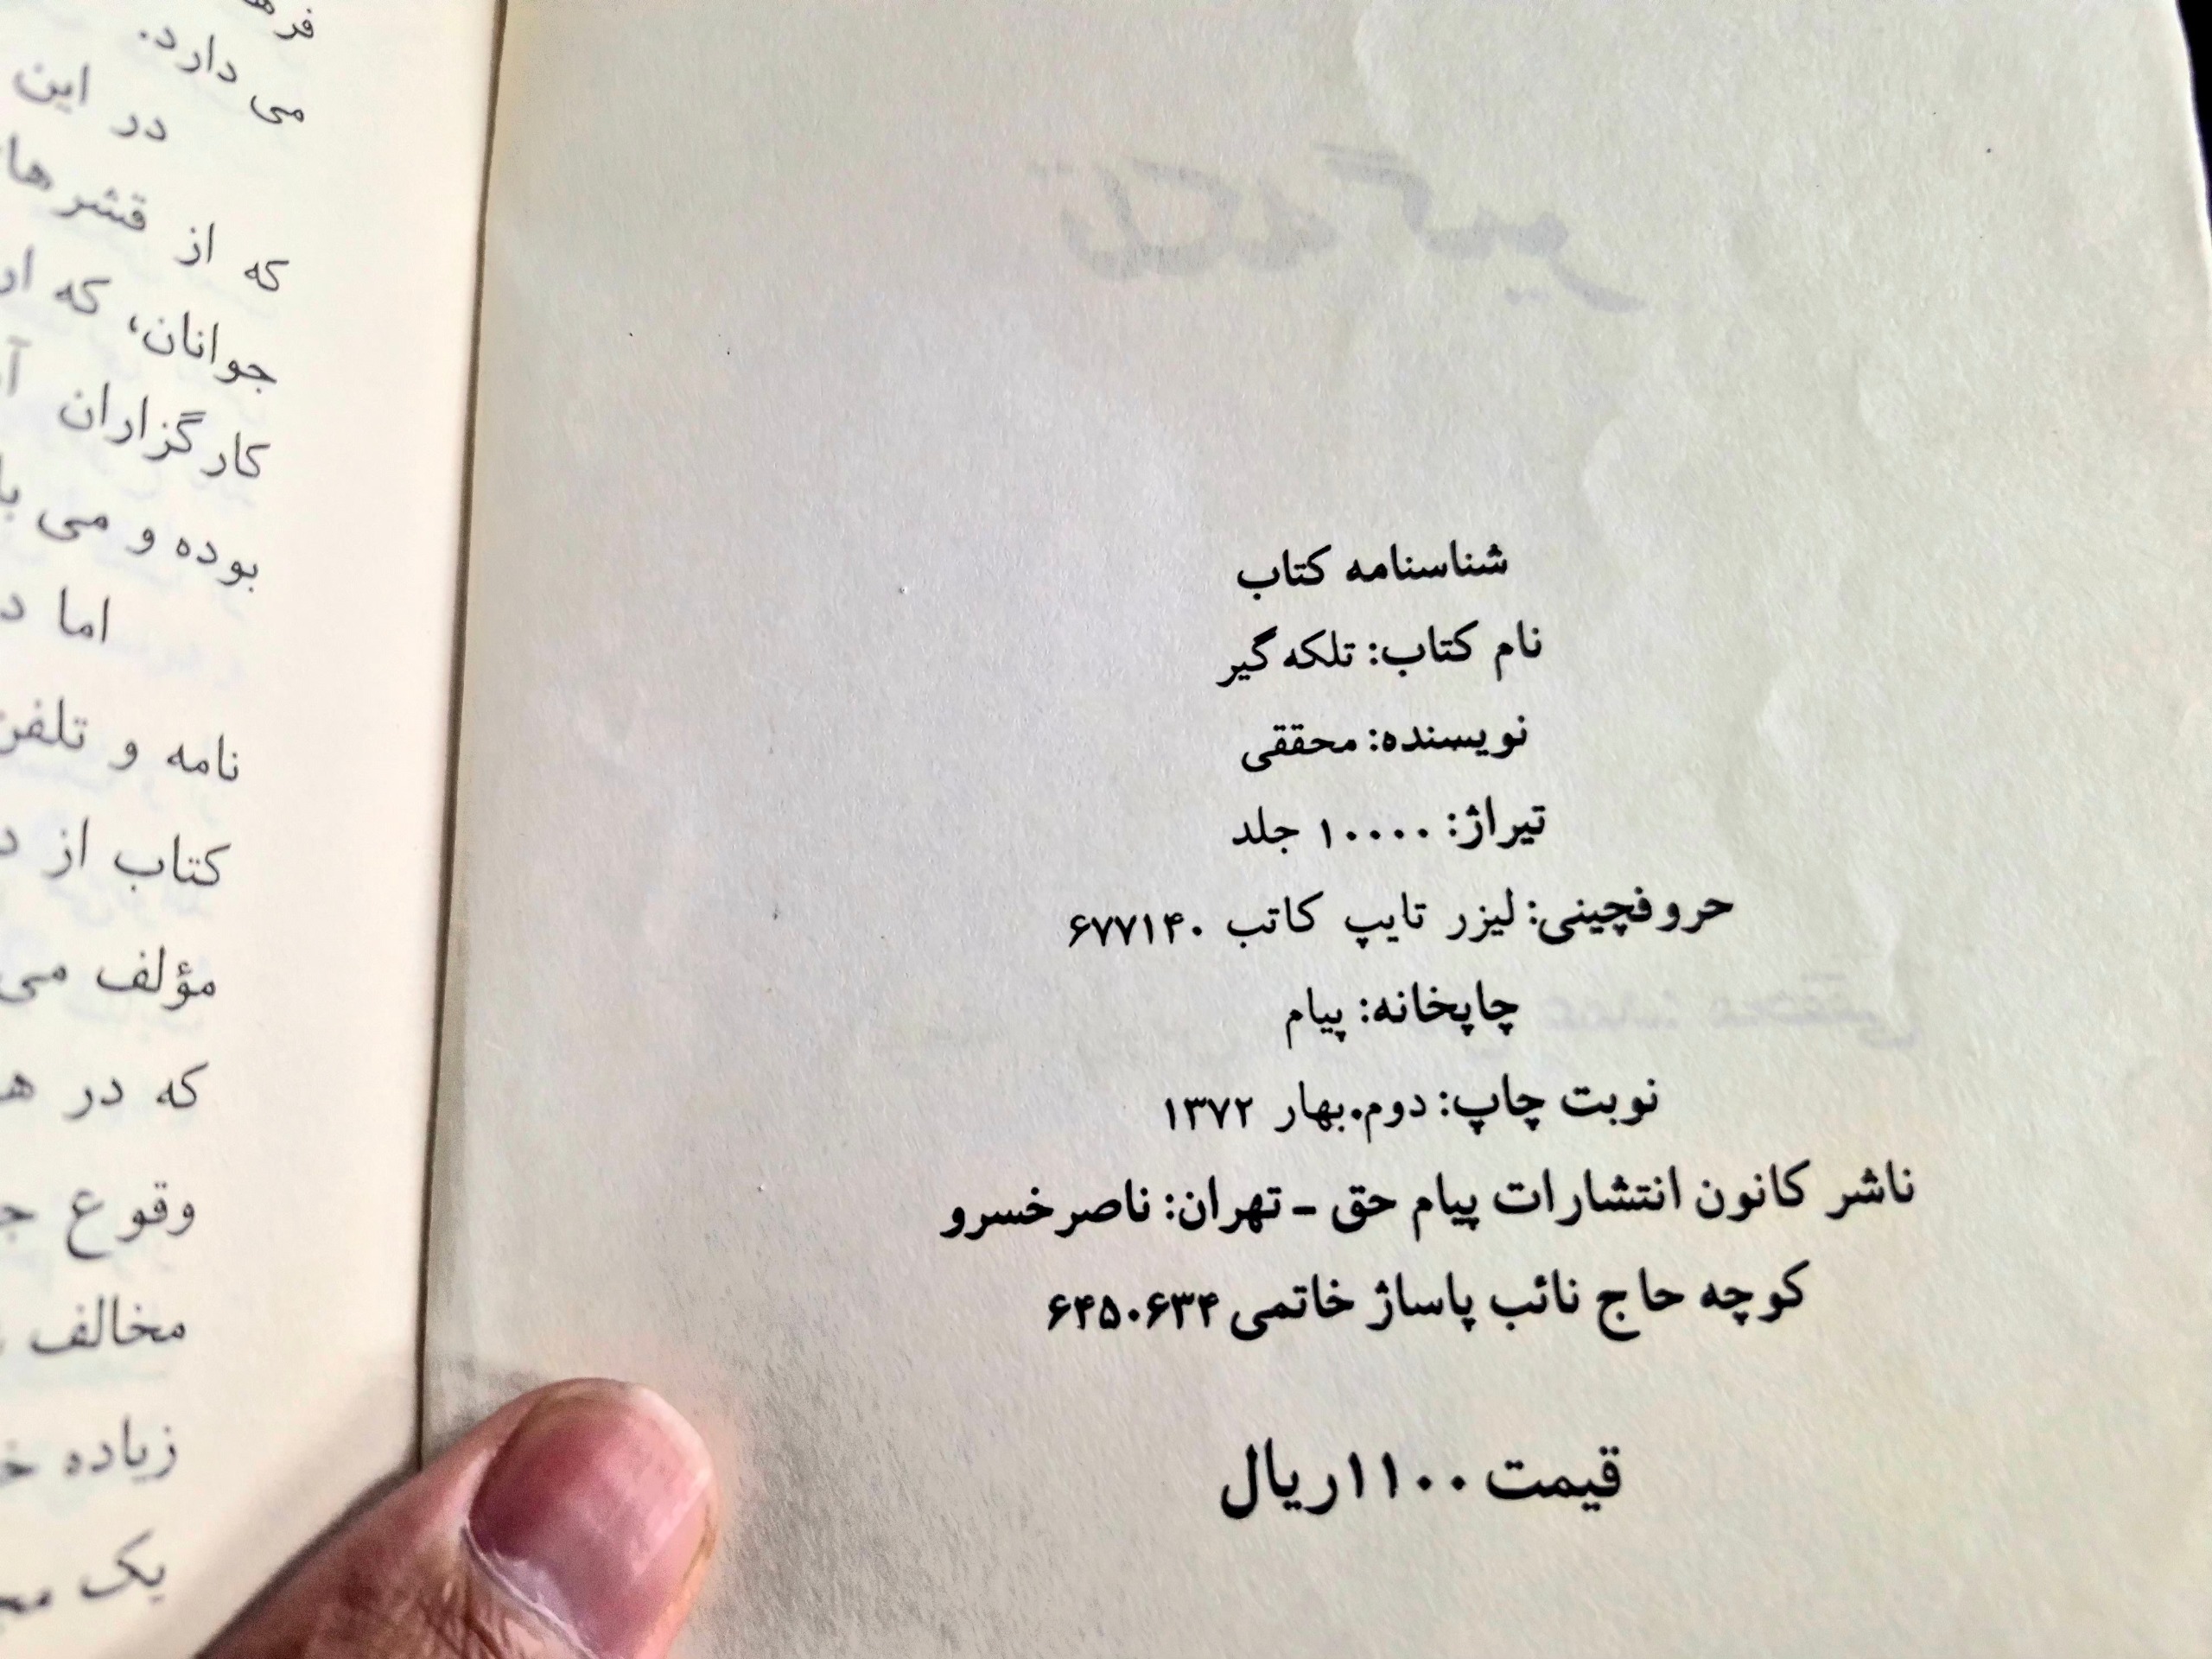 شناسنامه کتاب
نام کتاب: تلکه گیر
نویسنده: محققی
تیراژ: ۱۰۰۰۰ جلد
حروفچینی: لیزر تایپ کاتب ۶۷۷۱۴۰
چاپخانه: پیام
نوبت چاپ: دوم.بهار ۱۳۷۲
ناشر کانون انتشارات پیام حق - تهران: ناصرخسرو
کوچه حاج نائب پاساژ خاتمی ۶۴۵۰۶۳۴
قیمت ۱۱۰۰ریال
می دارد.
در این
که از قشرها
جوانان، که
کارگزاران
بوده و می
اما
نامه و
کتاب از
مؤلف می
که در
وقوع
مخالف
زیاده
یک